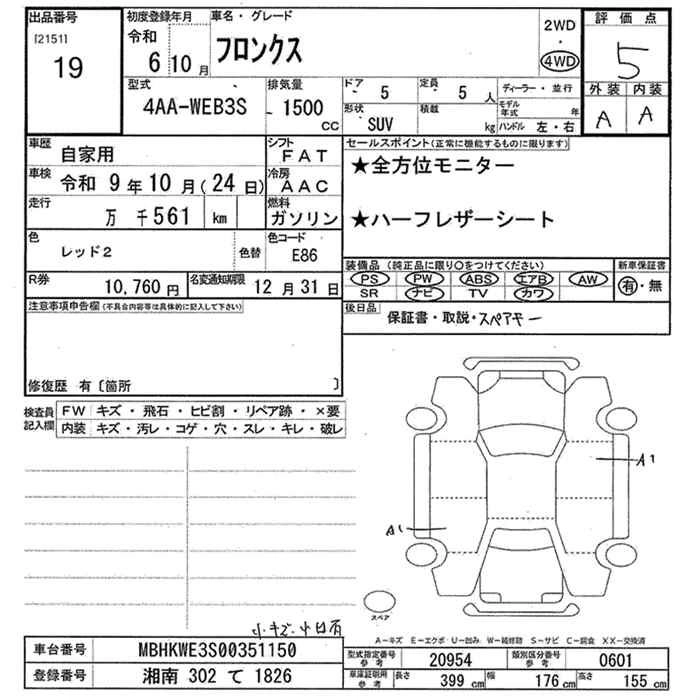 出品番号
[2151]
19
初度登録年月
令和
6 10 月
車名・グレード
フロンクス
2WD
・
4WD
評価点
5
外装 内装
A A
型式
4AA-WEB3S
排気量
1500
CC
ドア
5
定員
5 人
ディーラー・並行
モデル年式 年
形状
SUV
積載
kg
ハンドル 左・右
車歴
自家用
シフト
FAT
車検
令和 9年10月(24日)
冷房
AAC
走行
万 千561 km
燃料
ガソリン
色
レッド2
色替
色コード
E86
R券
10,760円
名変通知期限
12月31日
セールスポイント(正常に機能するものに限ります)
★全方位モニター
★ハーフレザーシート
装備品(純正品に限り○をつけてください)
PS PW ABS エアB AW
SR ナビ TV カワ
新車保証書
有・無
後日品
保証書・取説・スペアキー
注意事項申告欄(不具合内容等は具体的に記入して下さい)
修復歴 有〔箇所 〕
検査員記入欄
FW キズ・飛石・ヒビ割・リペア跡・×要
内装 キズ・汚レ・コゲ・穴・スレ・キレ・破レ
A1
A1
スペア
小キズ、小凹有
A−キズ E−エクボ U−凹み W−補修跡 S−サビ C−腐食 XX−交換済
車台番号
MBHKWE3S00351150
登録番号
湘南 302 て 1826
型式指定番号
参考
20954
類別区分番号
参考
0601
車庫証明用
参考
長さ
399 cm
幅
176 cm
高さ
155 cm